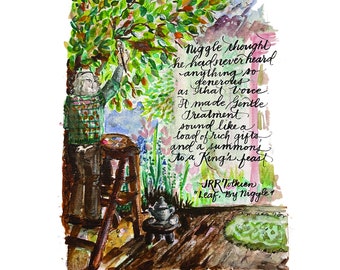 Niggle thought
he had never heard
anything so
generous
as that Voice
It made Gentle
Treatment
sound like a
load of rich gifts
and a summons
to a King's feast
JRR Tolkien
"Leaf, By Niggle"